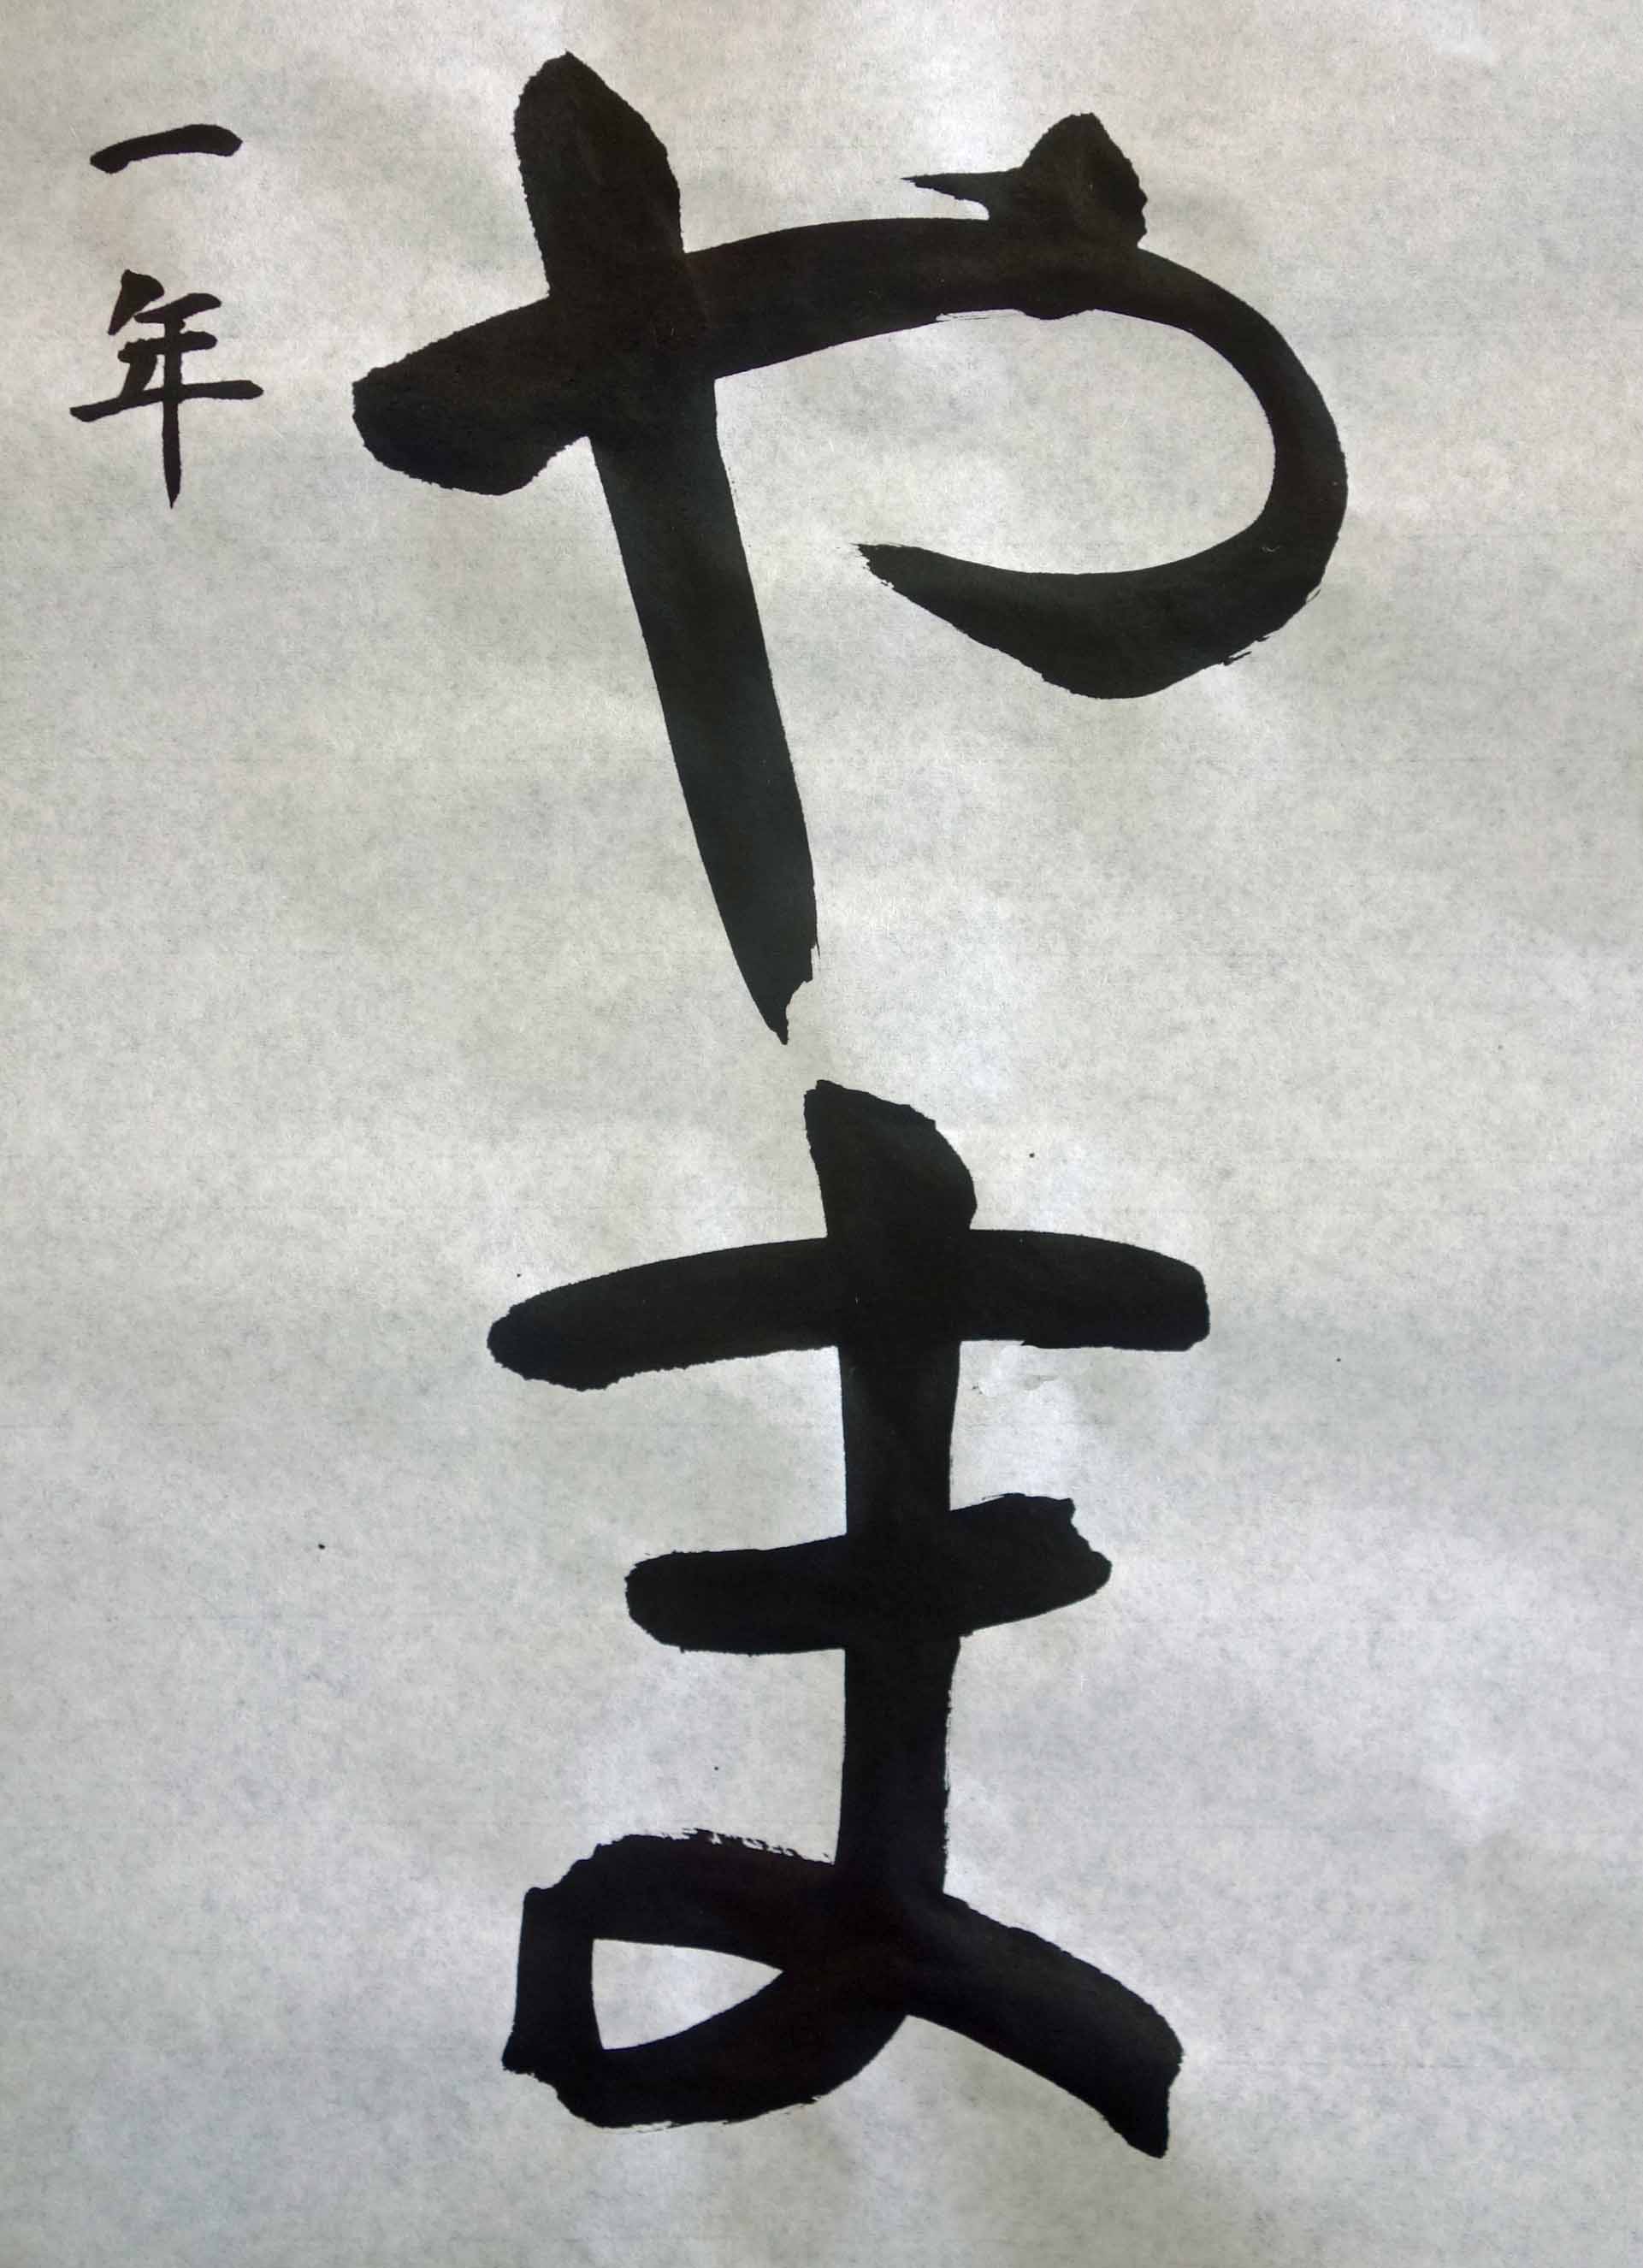 やま
一年